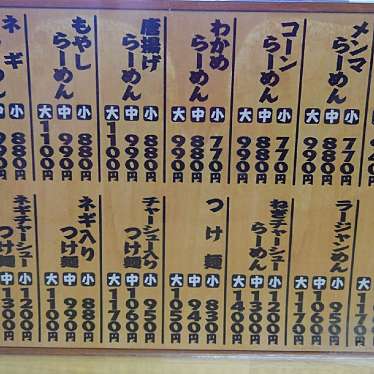 メンマ
らーめん
小770円
中880円
大990円
コーン
らーめん
小770円
中880円
大990円
わかめ
らーめん
小770円
中880円
大990円
唐揚げ
らーめん
小880円
中980円
大1100円
もやし
らーめん
小880円
中980円
大1100円
ネギ
らーめん
小880円
中990円
ラージャンめん
小950円
中1060円
大1170円
ねぎチャーシュー
らーめん
小1200円
中1300円
大1400円
つけ麺
小830円
中940円
大1050円
チャーシュー入り
つけ麺
小950円
中1060円
大1170円
ネギ入り
つけ麺
小880円
中990円
大1100円
ネギチャーシュー
つけ麺
小1200円
中1300円